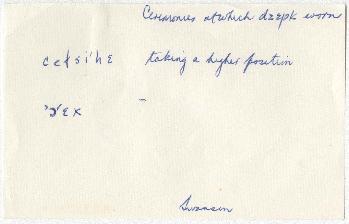 Ceremonies at which dzepk worn
celsi'hE taking a higher position
-
Swanson